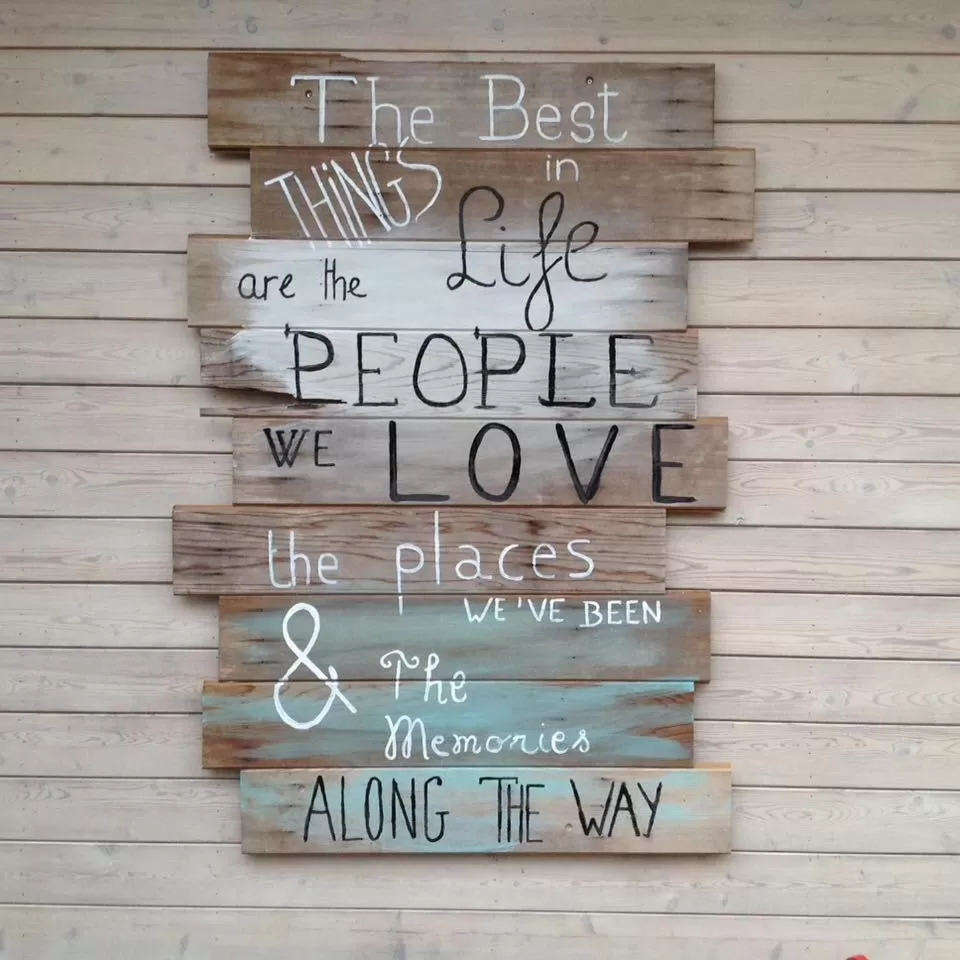 The Best
THiNGS in
Life
are the
PEOPLE
WE LOVE
the places
WE'VE BEEN
& The
Memories
ALONG THE WAY